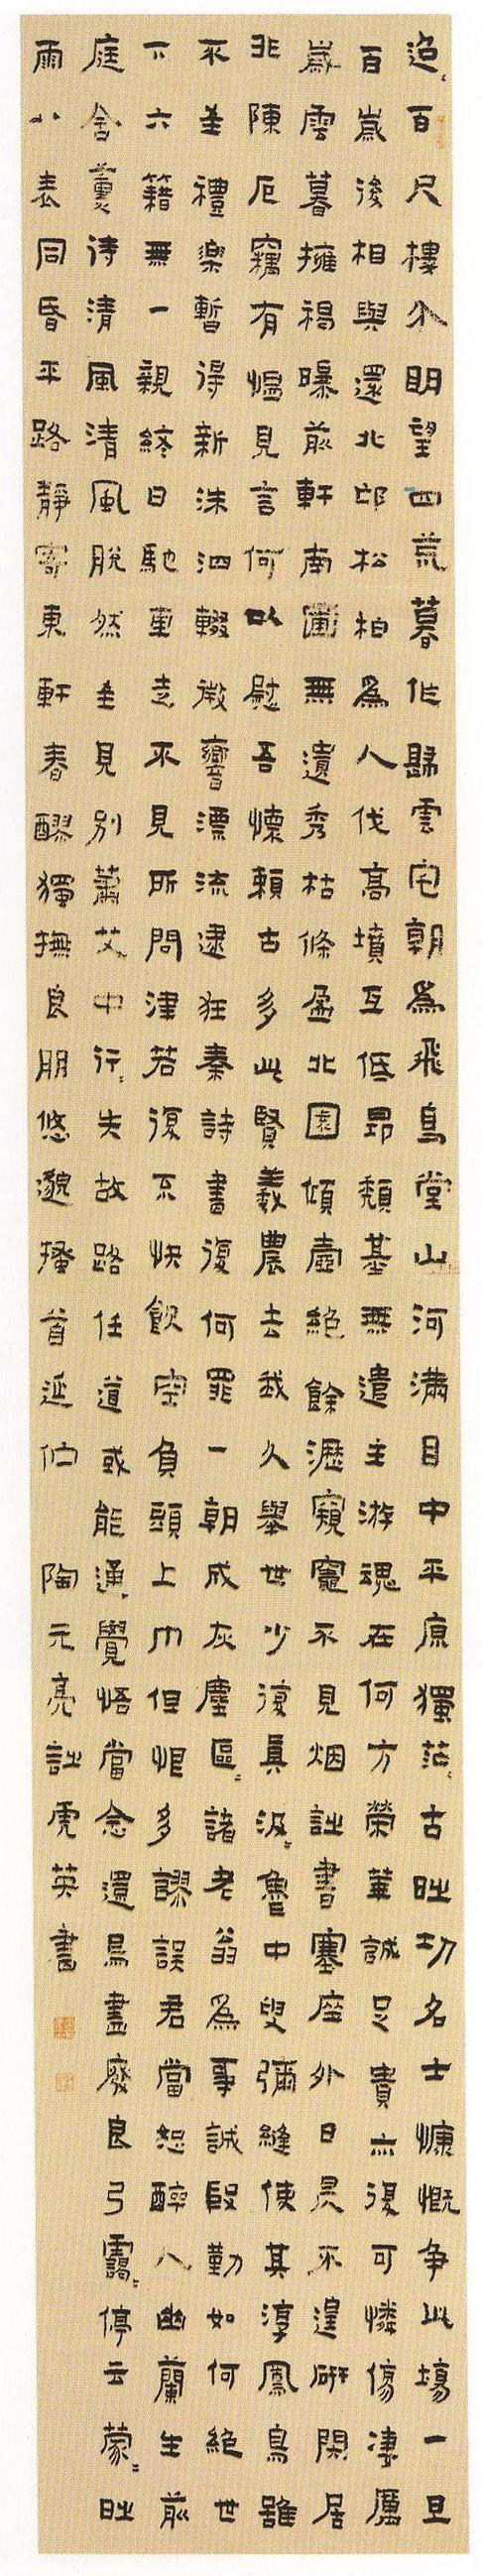 迢〻百尺樓分明望四荒暮作歸雲宅朝為飛鳥堂山河滿目中平原獨茫〻古時功名士慷慨爭此場一旦
百歲後相與還北邙松柏為人伐高墳互低昂頹基無遺主游魂在何方榮華誠足貴亦復可憐傷凄厲
歲雲暮擁褐曝前軒南圃無遺秀枯條盈北園傾壺絕餘瀝窺竈不見烟詩書塞座外日昃不遑研閑居
非陳厄竊有慍見言何以慰吾懷賴古多此賢羲農去我久舉世少復真汲〻魯中叟彌縫使其淳鳳鳥雖
不至禮樂暫得新洙泗輟微響漂流逮狂秦詩書復何罪一朝成灰塵區〻諸老翁為事誠殷勤如何絕世
下六籍無一親終日馳車走不見所問津若復不快飲空負頭上巾但恨多謬誤君當恕醉人幽蘭生前
庭含薰待清風清風脫然至見別蕭艾中行〻失故路任道或能通覺悟當念還鳥盡廢良弓靄〻停云蒙〻時
雨八表同昏平路靜寄東軒春醪獨撫良朋悠邈搔首延伫 陶元亮詩虎英書